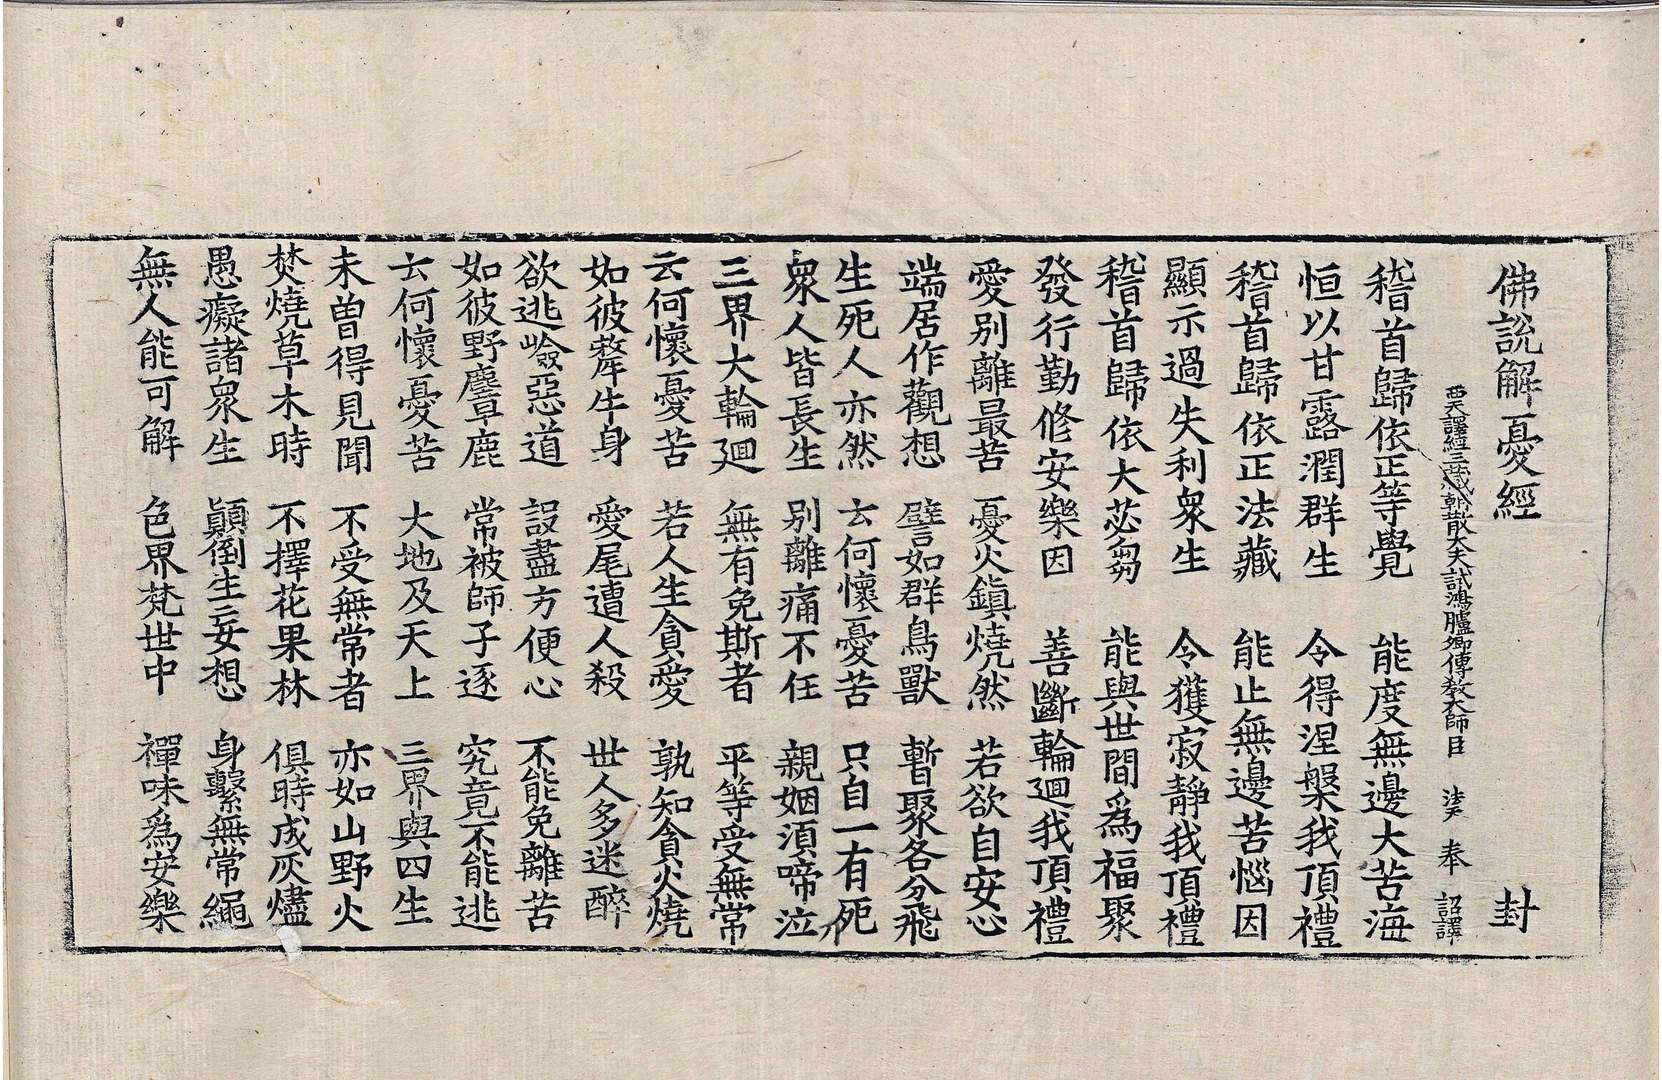 佛說解憂經 封
西天譯經三藏朝散大夫試鴻臚卿傳教大師臣 法天 奉 詔譯
稽首歸依正等覺 能度無邊大苦海
恒以甘露潤群生 令得涅槃我頂禮
稽首歸依正法藏 能止無邊苦惱因
顯示過失利衆生 令獲寂靜我頂禮
稽首歸依大苾芻 能與世間爲福聚
發行勤修安樂因 善斷輪迴我頂禮
愛別離最苦 憂火鎮燒然 若欲自安心
端居作觀想 譬如群鳥獸 暫聚各分飛
生死人亦然 云何懷憂苦 只自一有死
衆人皆長生 別離痛不任 親姻須啼泣
三界大輪迴 無有免斯者 平等受無常
云何懷憂苦 若人生貪愛 孰知貪火燒
如彼犛牛身 愛尾遭人殺 世人多迷醉
欲逃嶮惡道 設盡方便心 不能免離苦
如彼野麞鹿 常被師子逐 究竟不能逃
云何懷憂苦 大地及天上 三界與四生
未曾得見聞 不受無常者 亦如山野火
焚燒草木時 不擇花果林 俱時成灰燼
愚癡諸衆生 顛倒生妄想 身繫無常繩
無人能可解 色界梵世中 禪味爲安樂